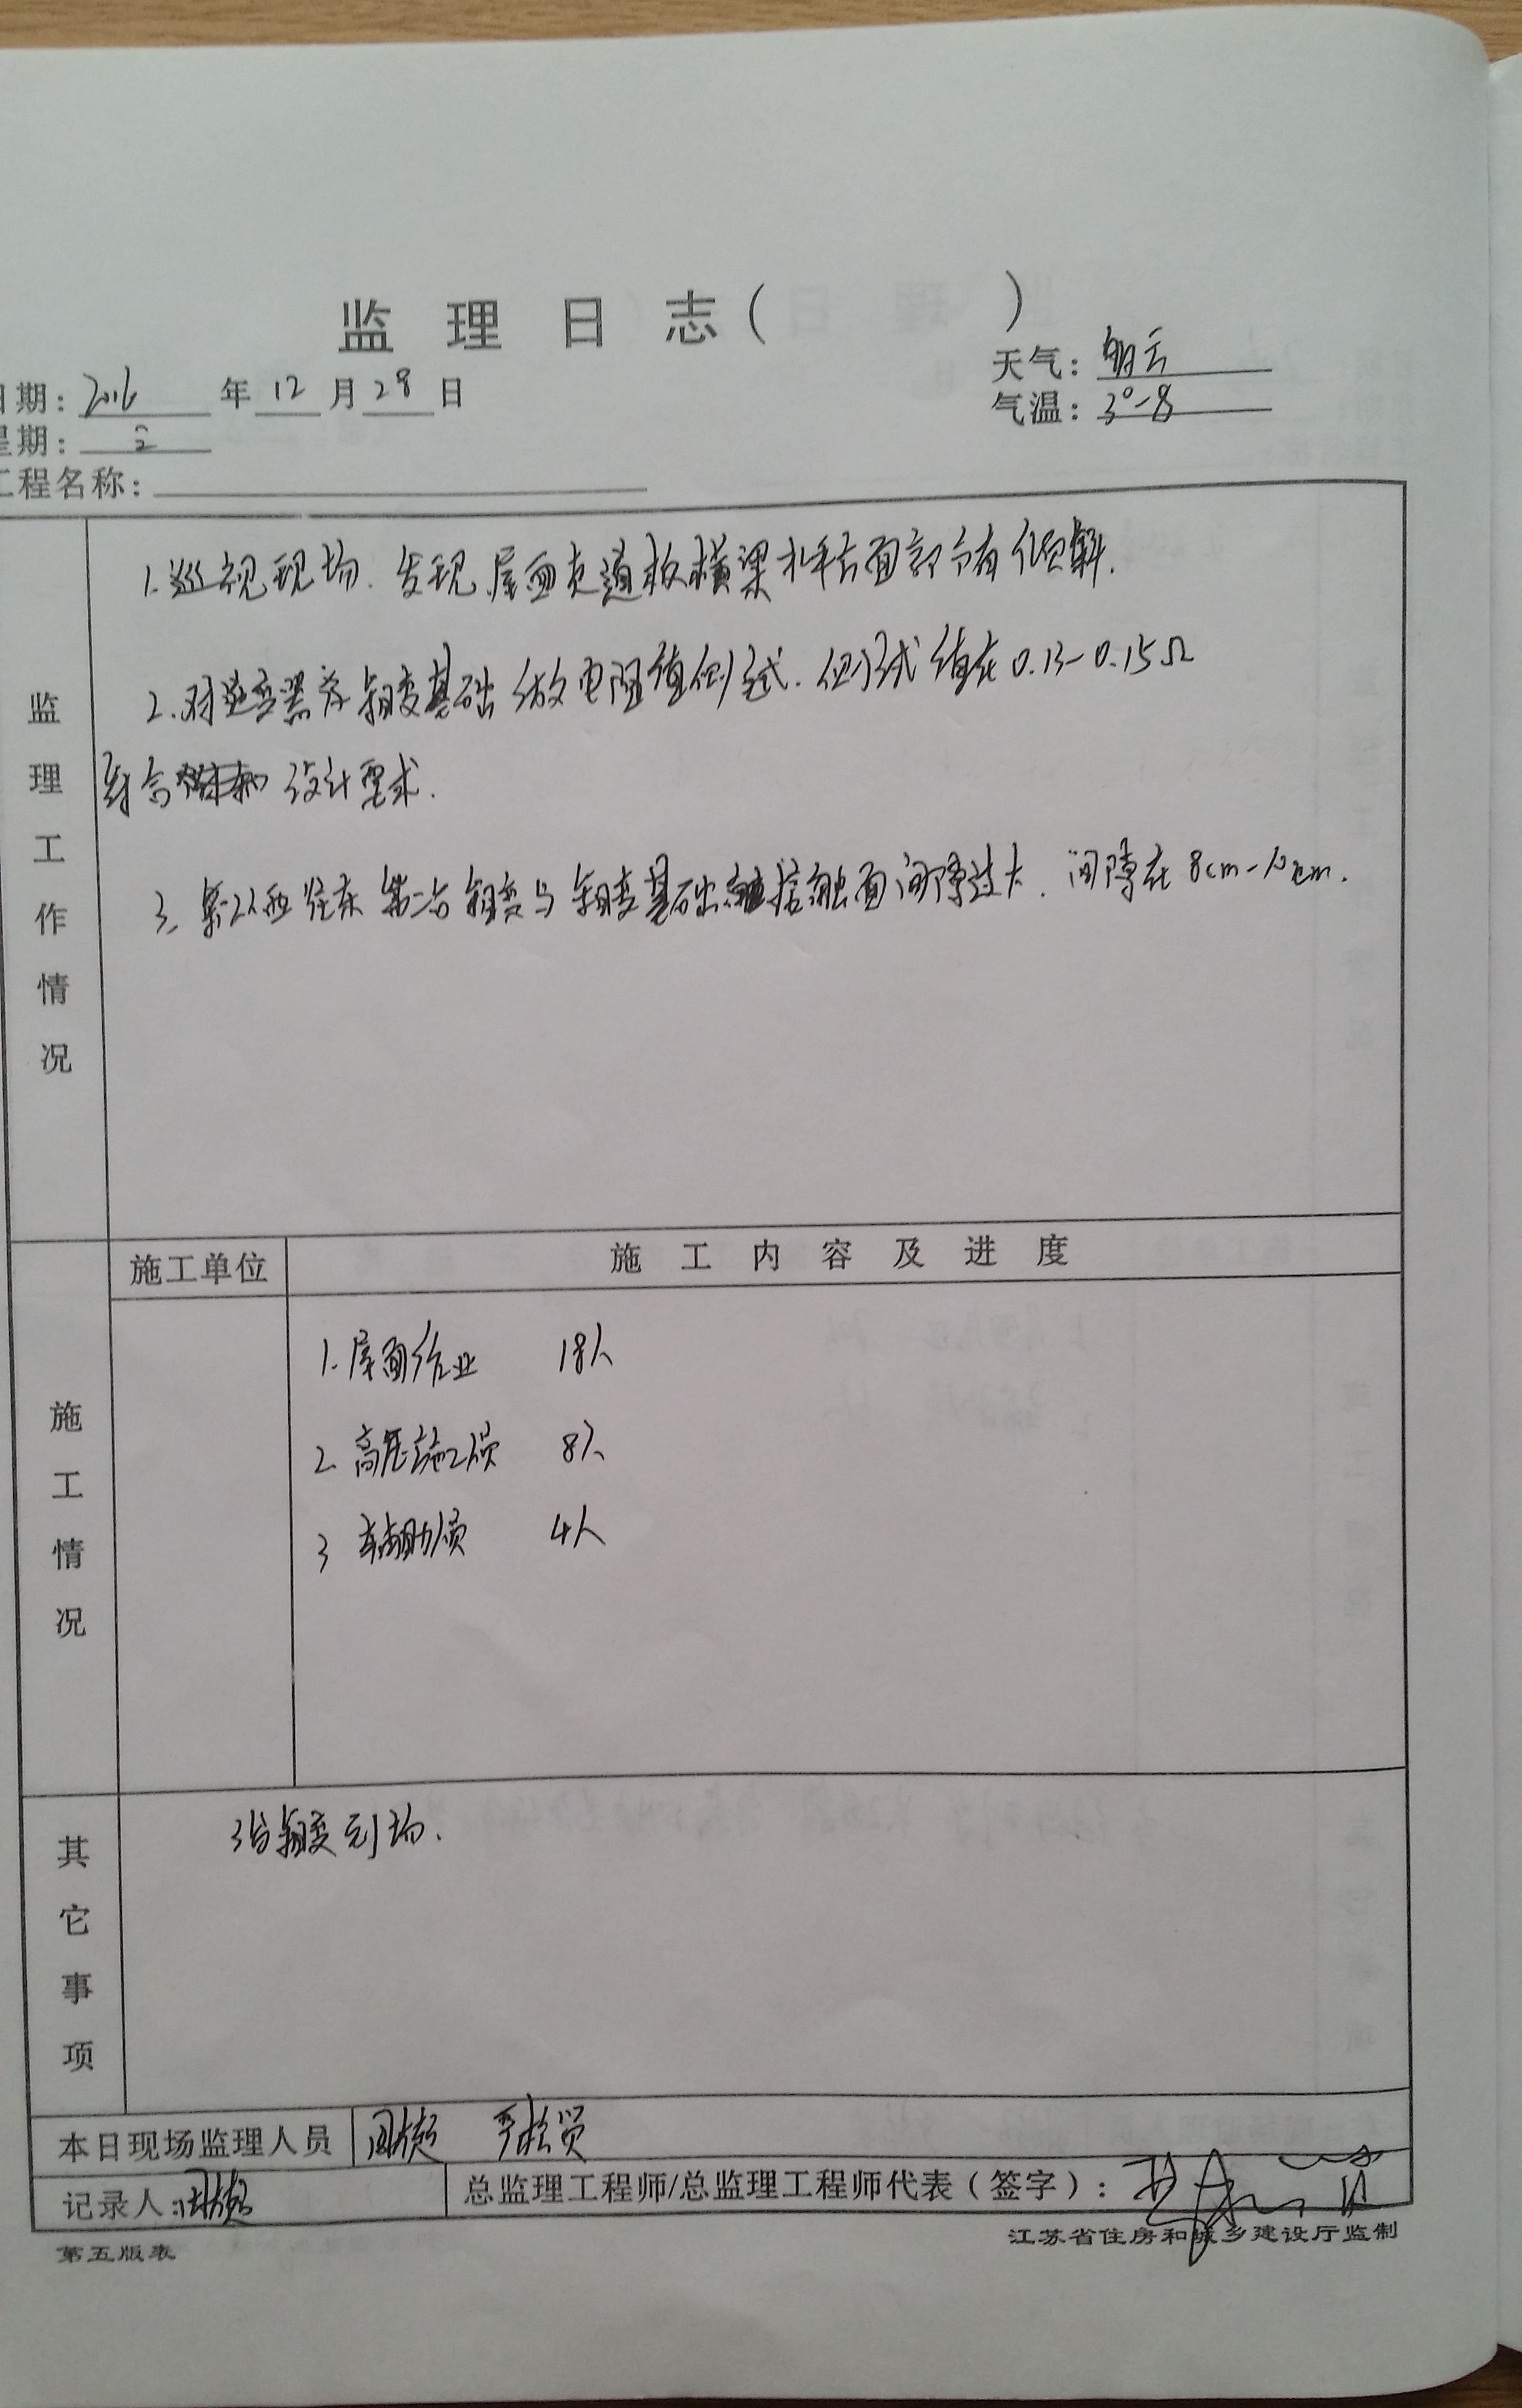 监理日志( )
日期: 2016 年 12 月 28 日
天气: 多云
星期: 三
气温: 3°-8
工程名称:
监理工作情况
1.巡视现场.发现屋面走道板横梁水平方面部分有倾斜.
2.对逆变器及箱变基础做电阻值测试.测试值在0.13-0.15Ω
符合 设计要求.
3、第 西 东第一台箱变与箱变基础 接触面间隙过大.间隙在8cm-10cm.
施工单位 施工内容及进度
施工情况
1.屋面作业 18人
2.高压施工员 8人
3 辅助员 4人
其它事项
3台箱变到场.
本日现场监理人员
记录人:
总监理工程师/总监理工程师代表(签字):
第五版表
江苏省住房和城乡建设厅监制